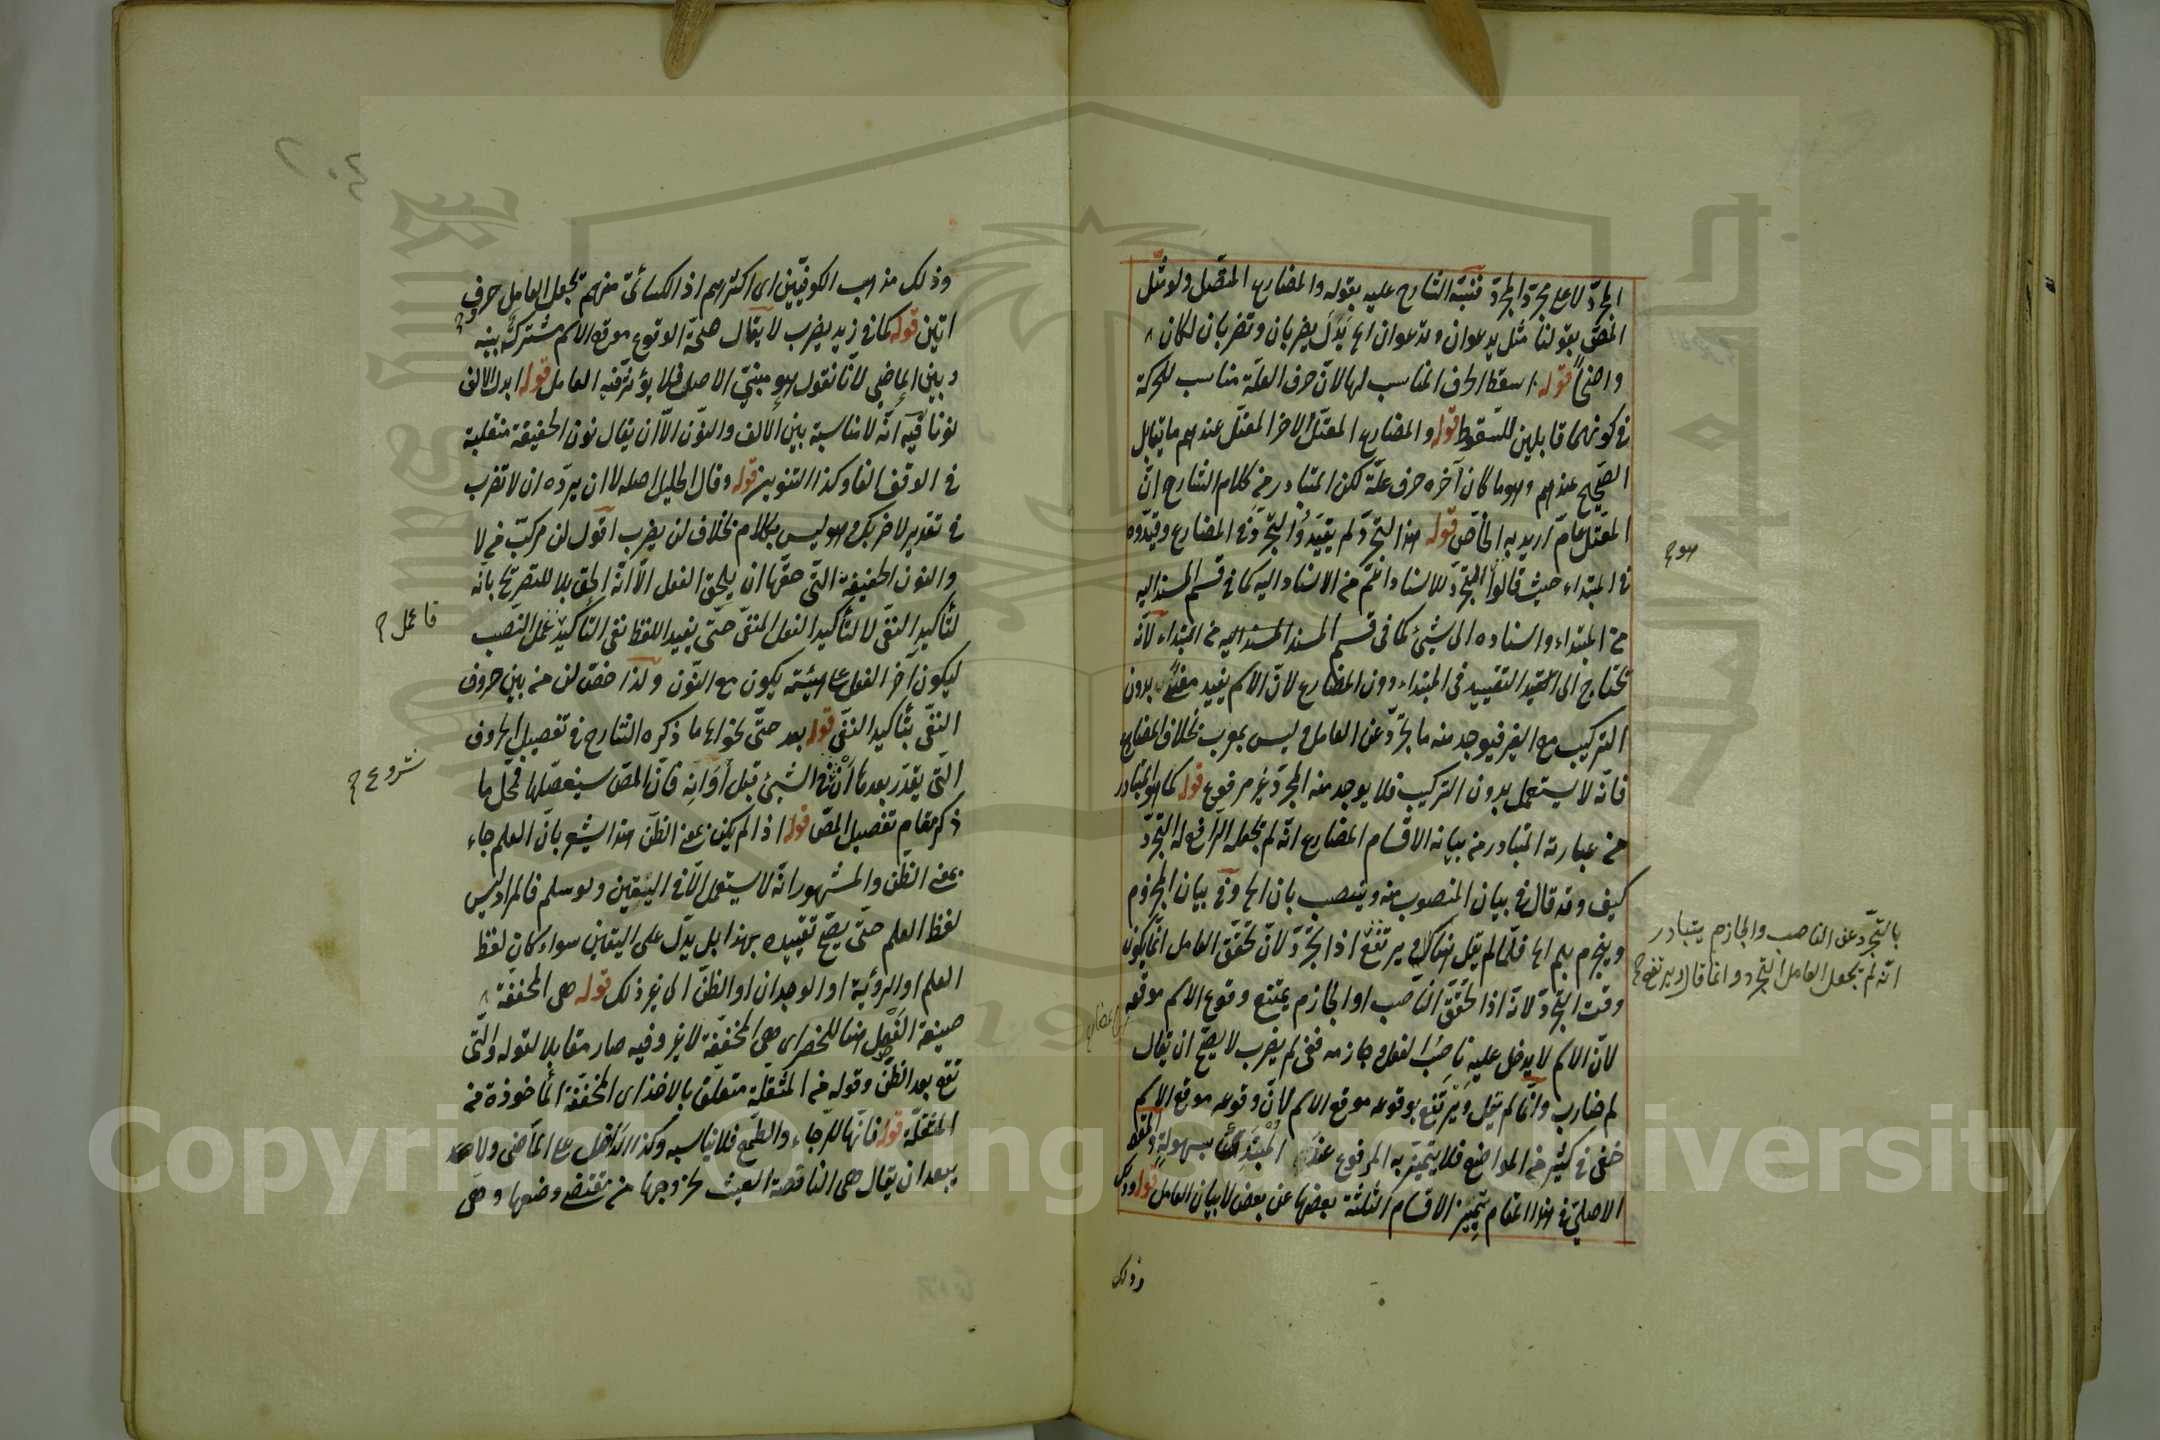 المجرد لا على مجرد المجرد فنبه الشارح عليه بقوله والمضارع المتصل ولو مثل
المص بقولنا مثل يدعوان وتدعوان الى بدل يضربان وتضربان لكان
واضحا قوله اسقط الحرف المناسب لها لان حرف العلة مناسب للحركة
في كونهما قابلين للسقوط قوله والمضارع المعتل الاخر المعتل عندهم ما يقابل
الصحيح عندهم وهو ما كان آخره حرف علة لكن المتبادر من كلام الشارح ان
المعتل عام اريد به الخاص قوله هذا التجرد لم يقيدوا التجرد في المضارع وقيدوه
في المبتداء حيث قالوا المجرد للاسناد اعم من الاسناد اليه كما في قسم المسند اليه
من المبتداء واسناده الى شيئ كما في قسم المسند من المبتداء لانه
يحتاج الى التقييد في المبتداء دون المضارع لان الاسم يفيد معناه بدون
التركيب مع الغير فيوجد منه ما يجرد عن العامل وليس بمعرب بخلاف المضارع
فانه لا يستعمل بدون التركيب فلا يوجد منه المجرد غير مرفوع قوله كما هو المتبادر
من عبارته المتبادر من بيانه الاقسام المضارع انه لم يجعل الرافع له التجرد
كيف وقد قال في بيان المنصوب منه وينصب بان الخ وفي بيان المجزوم
وينجزم بلم الخ فلما لم يقل هناك يرتفع اذا تجرد لان تحقق العامل انما يكون
وقت التجرد لانه اذا تحقق الناصب او الجازم يمتنع وقوع الاسم موقعه
لان الاسم لا يدخل عليه ناصب الفعل وجازمه ففي لم يضرب لا يصح ان يقال
لم ضارب وانما لم يقل ويرتفع بوقوعه موقع الاسم لان وقوعه موقع الاسم
خفي في كثير من المواضع فلا يتميز به المرفوع عند المبتدئ بسهولة والمقصد
الاصلي في هذا المقام تمييز الاقسام الثلثة بعضها عن بعض لا بيان العامل قوله وذلك
هو
بالتجرد عن الناصب والجازم يتبادر
انه لم يجعل العامل التجرد وانما قال ويرتفع
وذلك
وذلك مذهب الكوفيين اى اكثرهم اذ الكسائي منهم يجعل العامل حرف
اتين قوله كما في زيد يضرب لا يقال صحة الوقوع موقع الاسم مشترك بينه
وبين الماضي لانا نقول هو مبني الاصل فلا يؤثر فيه العامل قوله ابدل الالف
نونا فيه انه لا مناسبة بين الالف والنون الا ان يقال نون الخفيفة منقلبة
في الوقف الفا وكذا التنوين قوله وقال الخليل اصله لا ان يرده ان لا تضرب
في تقدير لا ضربك وهو ليس بكلام بخلاف لن يضرب اقول لن مركب من لا
والنون الخفيفة التي حقها ان يلحق الفعل الا انه الحق بلا للتصريح بانه
لتأكيد النفي لا لتأكيد الفعل المنفي حتى يفيد اللفظ نفي التأكيد عمل النصب
ليكون آخر الفعل على هيئته يكون مع النون ولذا خص لن من بين حروف
النفي بتأكيد النفي قوله بعد حتى نحو الخ ما ذكره الشارح في تفصيل الحروف
التي يقدر بعدها ان في الشيئ قبل اوانه فان المص سيفصلها فمحل ما
ذكر مقام تفصيل المص قوله اذا لم يكن بمعنى الظن هذا يشعر بان العلم جاء
بمعنى الظن والمشهور انه لا يستعمل الا في اليقين ولو سلم فالمراد ليس
لفظ العلم حتى يصح تقييده بهذا بل يدل على اليقين سواء كان لفظ
العلم او الرؤية او الوجدان او الظن الى غير ذلك قوله هى المخففة
صيغة الفصل هنا للحصر اى هى المخففة لا غير وفيه صار مقابلا لقوله والتي
تقع بعد الظن وقوله من المثقلة متعلق بالاخذ اى المخففة المأخوذة من
المثقلة قوله فانها للرجاء والطمع فلا يناسبه وكذا الداخل على الماضى ولا
يبعد ان يقال هى الناقصة الغيت لخروجها من مقتضى وضعها وهى
فاعمل
شروع